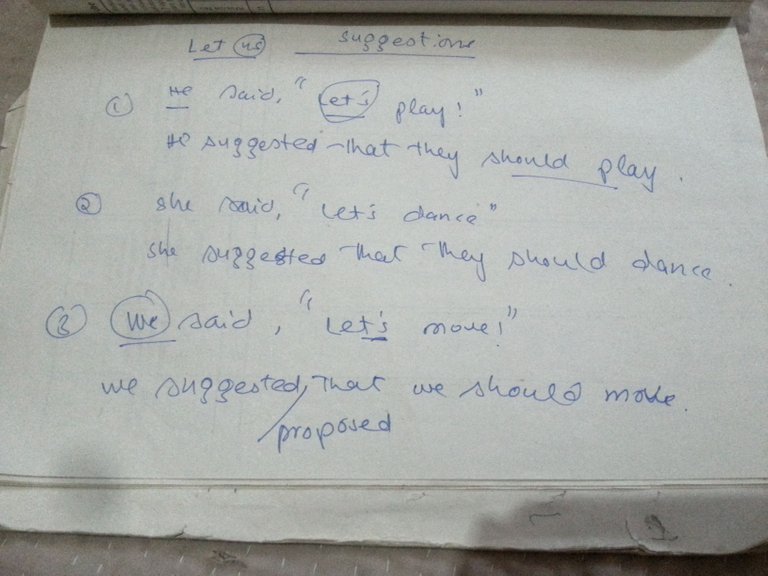 Let us suggestions
① He said, "Let's play!"
He suggested that they should play.
② she said, "Let's dance"
she suggested that they should dance.
③ We said, "Let's move!"
we suggested, that we should move.
/proposed